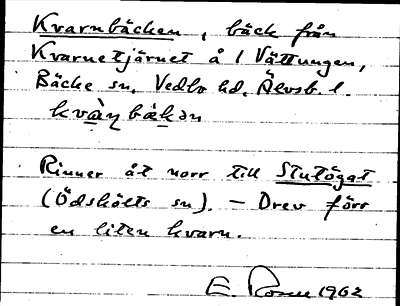 Kvarnbäcken, bäck från
Kvarnetjärnet å 1 Vättungen,
Bäcke sn, Vedbo hd, Älvsb. l.
kvàɳbäkən
Rinner åt norr till Stutögat
(Ödskölts sn). — Drev förr
en liten kvarn.
E. 1962